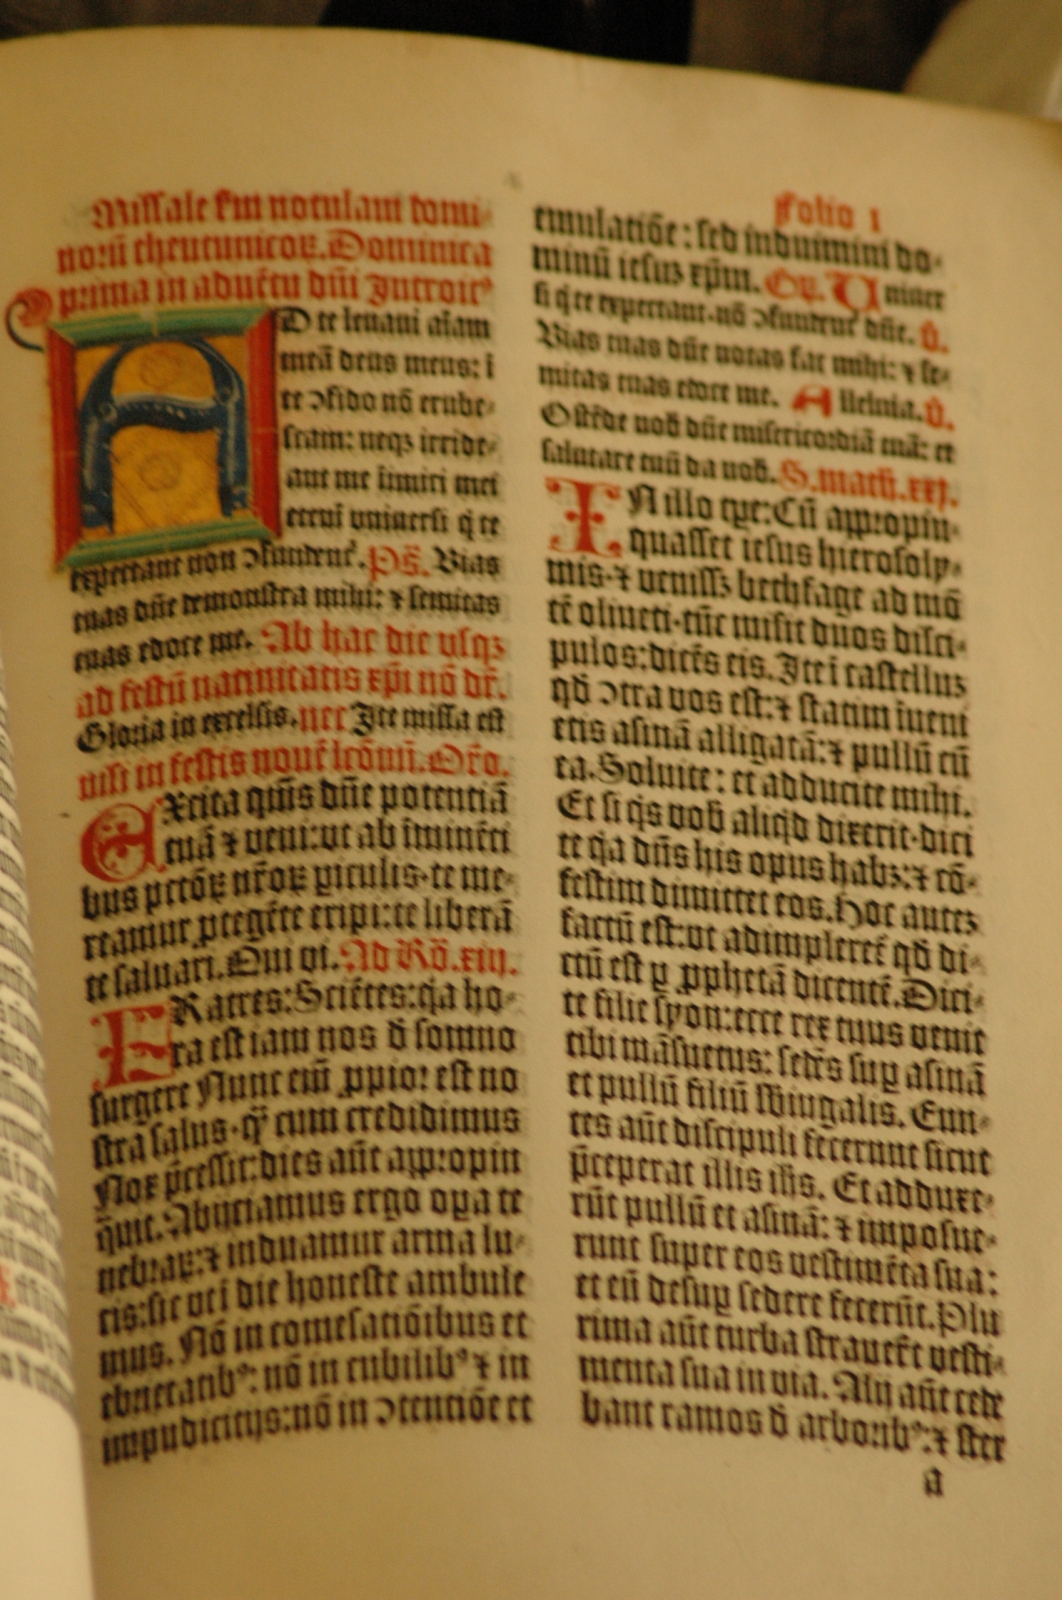 Folio 1
Missale scd'm notulam domi-
norū theutunicoꝝ. Dominica
prima in aduētu dn̄i Introit⁹
AD te leuaui aīam
meā deus meus: ī
te ↄfido nō erube-
scam: neqꝫ irride-
ant me īimici mei
eteni vniuersi q̄ te
expectant non ↄfundent̄. Ps̄. Vias
tuas dn̄e demonstra mihi: ⁊ semitas
tuas edoce me. Ab hac die vsqꝫ
ad festū natiuitatis xp̄i nō dr̄.
Gloria in excelsis. nec Ite missa est
nisi in festis nouē lc̄onū. Or̄o.
EXcita qm̄s dn̄e potentiā
tuā ⁊ veni: vt ab īminēti
bus pctōꝝ nr̄oꝝ ꝑiculis. te me-
reamur ꝓtegēte eripi: te liberā
te saluari. Qui vi. Ad Rō. xiij.
FRatres: Sciētes: q̄a ho-
ra est iam nos d̄ somno
surgere Nunc em̄ ꝓpior est no
stra salus. q̄ꝫ cum credidimus
Nox p̄cessit: dies aūt appropin
q̄uit. Abijciamus ergo oꝑa te
nebraꝝ: ⁊ induamur arma lu-
cis: sic vt ī die honeste ambule
mus. Nō in comesatiōibus et
ebrietatib⁹: nō in cubilib⁹ ⁊ in
impudicitijs: nō in ↄtentiōe et
emulatiōe: sed induimini do-
minū iesuꝫ xp̄m. Gr̄. Vniuer
si q̄ te expectant. nō ↄfundent̄ dn̄e. v̄.
Vias tuas dn̄e notas fac mihi: ⁊ se-
mitas tuas edoce me. Alleluia. v̄.
Ostēde nob̄ dn̄e misericordiā tuā: et
salutare tuū da nob̄. S. math. xxj.
IN illo tꝑe: Cū appropin-
quasset iesus hierosoly-
mis. ⁊ venissꝫ bethfage ad mō
tē oliueti. tūc misit duos disci-
pulos: dicēs eis. Ite ī castelluꝫ
qd̄ ↄtra vos est: ⁊ statim īueni
etis asinā alligatā: ⁊ pullū cū
ea. Soluite: et adducite mihi.
Et si q̄s vob̄ aliq̄d dixerit. dici
te q̄a dn̄s his opus habꝫ: ⁊ cō-
festim dimittet eos. Hoc auteꝫ
factū est: vt adimpleret̄ qd̄ di-
ctū est ꝑ ꝓphetā dicentē. Dici-
te filie syon: ecce rex tuus venit
tibi māsuetus: sedēs suꝑ asinā
et pullū filiū sbiugalis. Eun-
tes aūt discipuli fecerunt sicut
p̄ceperat illis ihs̄. Et adduxe-
rūt pullū et asinā: ⁊ imposue-
runt super eos vestimēta sua:
et eū desuꝑ sedere fecerūt. Plu
rima aūt turba strauerūt vesti-
menta sua in via. Alij aūt cede
bant ramos d̄ arborib⁹: ⁊ ster
a